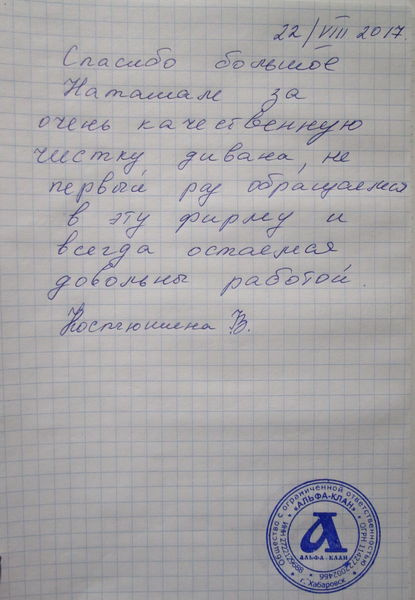 22/VIII 2017.
Спасибо большое
Наташам за
очень качественную
чистку дивана, не
первый раз обращаемся
в эту фирму и
всегда остаемся
довольны работой.
В.
Общество с ограниченной ответственностью
• «АЛЬФА-КЛАН» •
А
АЛЬФА-КЛАН
г. Хабаровск